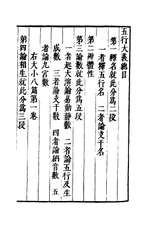 五行大義總目
第一釋名就此分為二段
一者釋五行名　二者論支干名
第二辨體性
第三論數就此分為五段
一者起大衍論易動靜數　二者論五行及生
成數　三者論支干數　四者論納音數　五
者論九宮數
右大小八篇第一卷
第四論相生就此分為三段